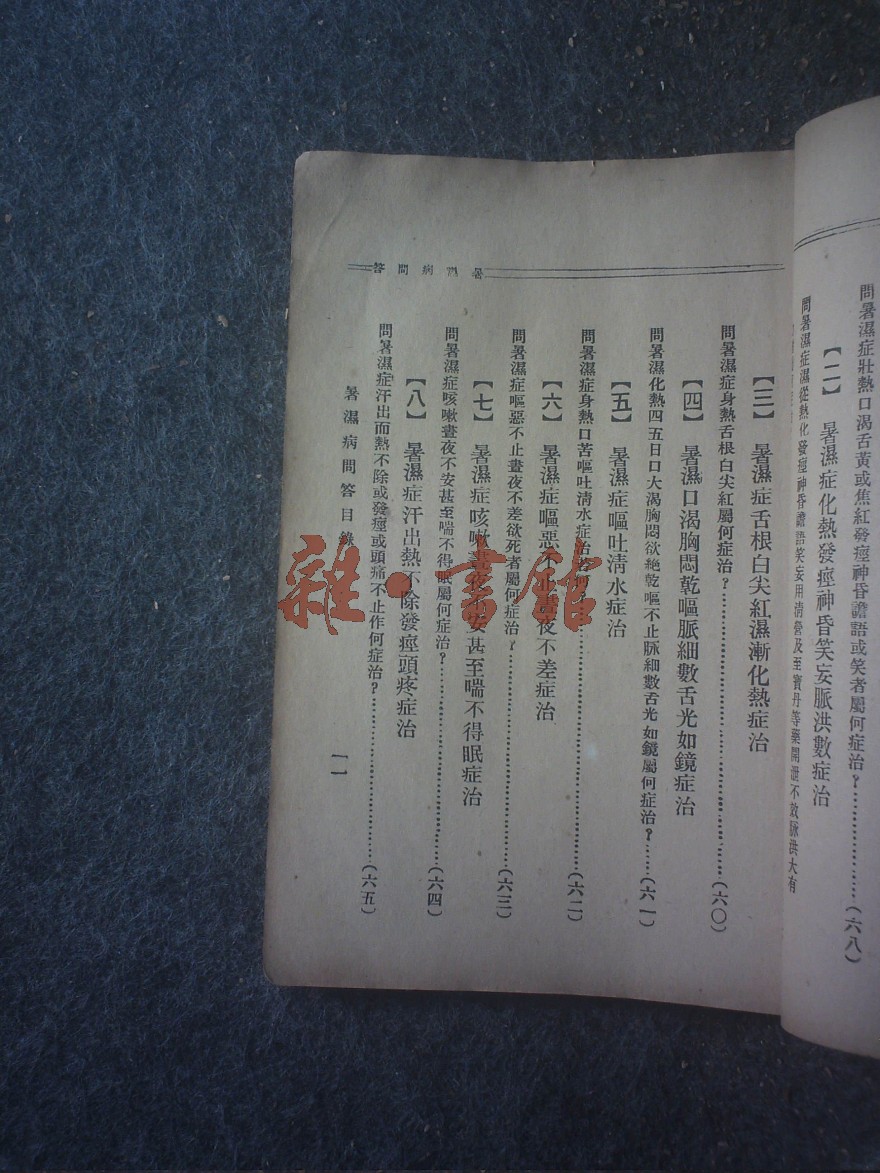 問暑濕症壯熱口渴舌黃或焦紅發痙神昏譫語或笑者屬何症治？……(六八)
【二】 暑濕症化熱發痙神昏笑妄脈洪數症治
問暑濕症濕從熱化發痙神昏譫語笑妄用清營及至寶丹等藥開泄不效脈洪大有
暑濕病問答
【三】 暑濕症舌根白尖紅濕漸化熱症治
問暑濕症身熱舌根白尖紅屬何症治？……(六〇)
【四】 暑濕口渴胸悶乾嘔脈細數舌光如鏡症治
問暑濕化熱四五日口大渴胸悶欲絕乾嘔不止脉細數舌光如鏡屬何症治？……(六一)
【五】 暑濕症嘔吐清水症治
問暑濕症身熱口苦嘔吐清水症治若何？……(六二)
【六】 暑濕症嘔惡不止晝夜不差症治
問暑濕症嘔惡不止晝夜不差欲死者屬何症治？……(六三)
【七】 暑濕症咳嗽晝夜不安甚至喘不得眠症治
問暑濕症咳嗽晝夜不安甚至喘不得眠屬何症治？……(六四)
【八】 暑濕症汗出熱不除發痙頭疼症治
問暑濕症汗出而熱不除或發痙或頭痛不止作何症治？……(六五)
暑濕病問答目錄
一一
雜·書館